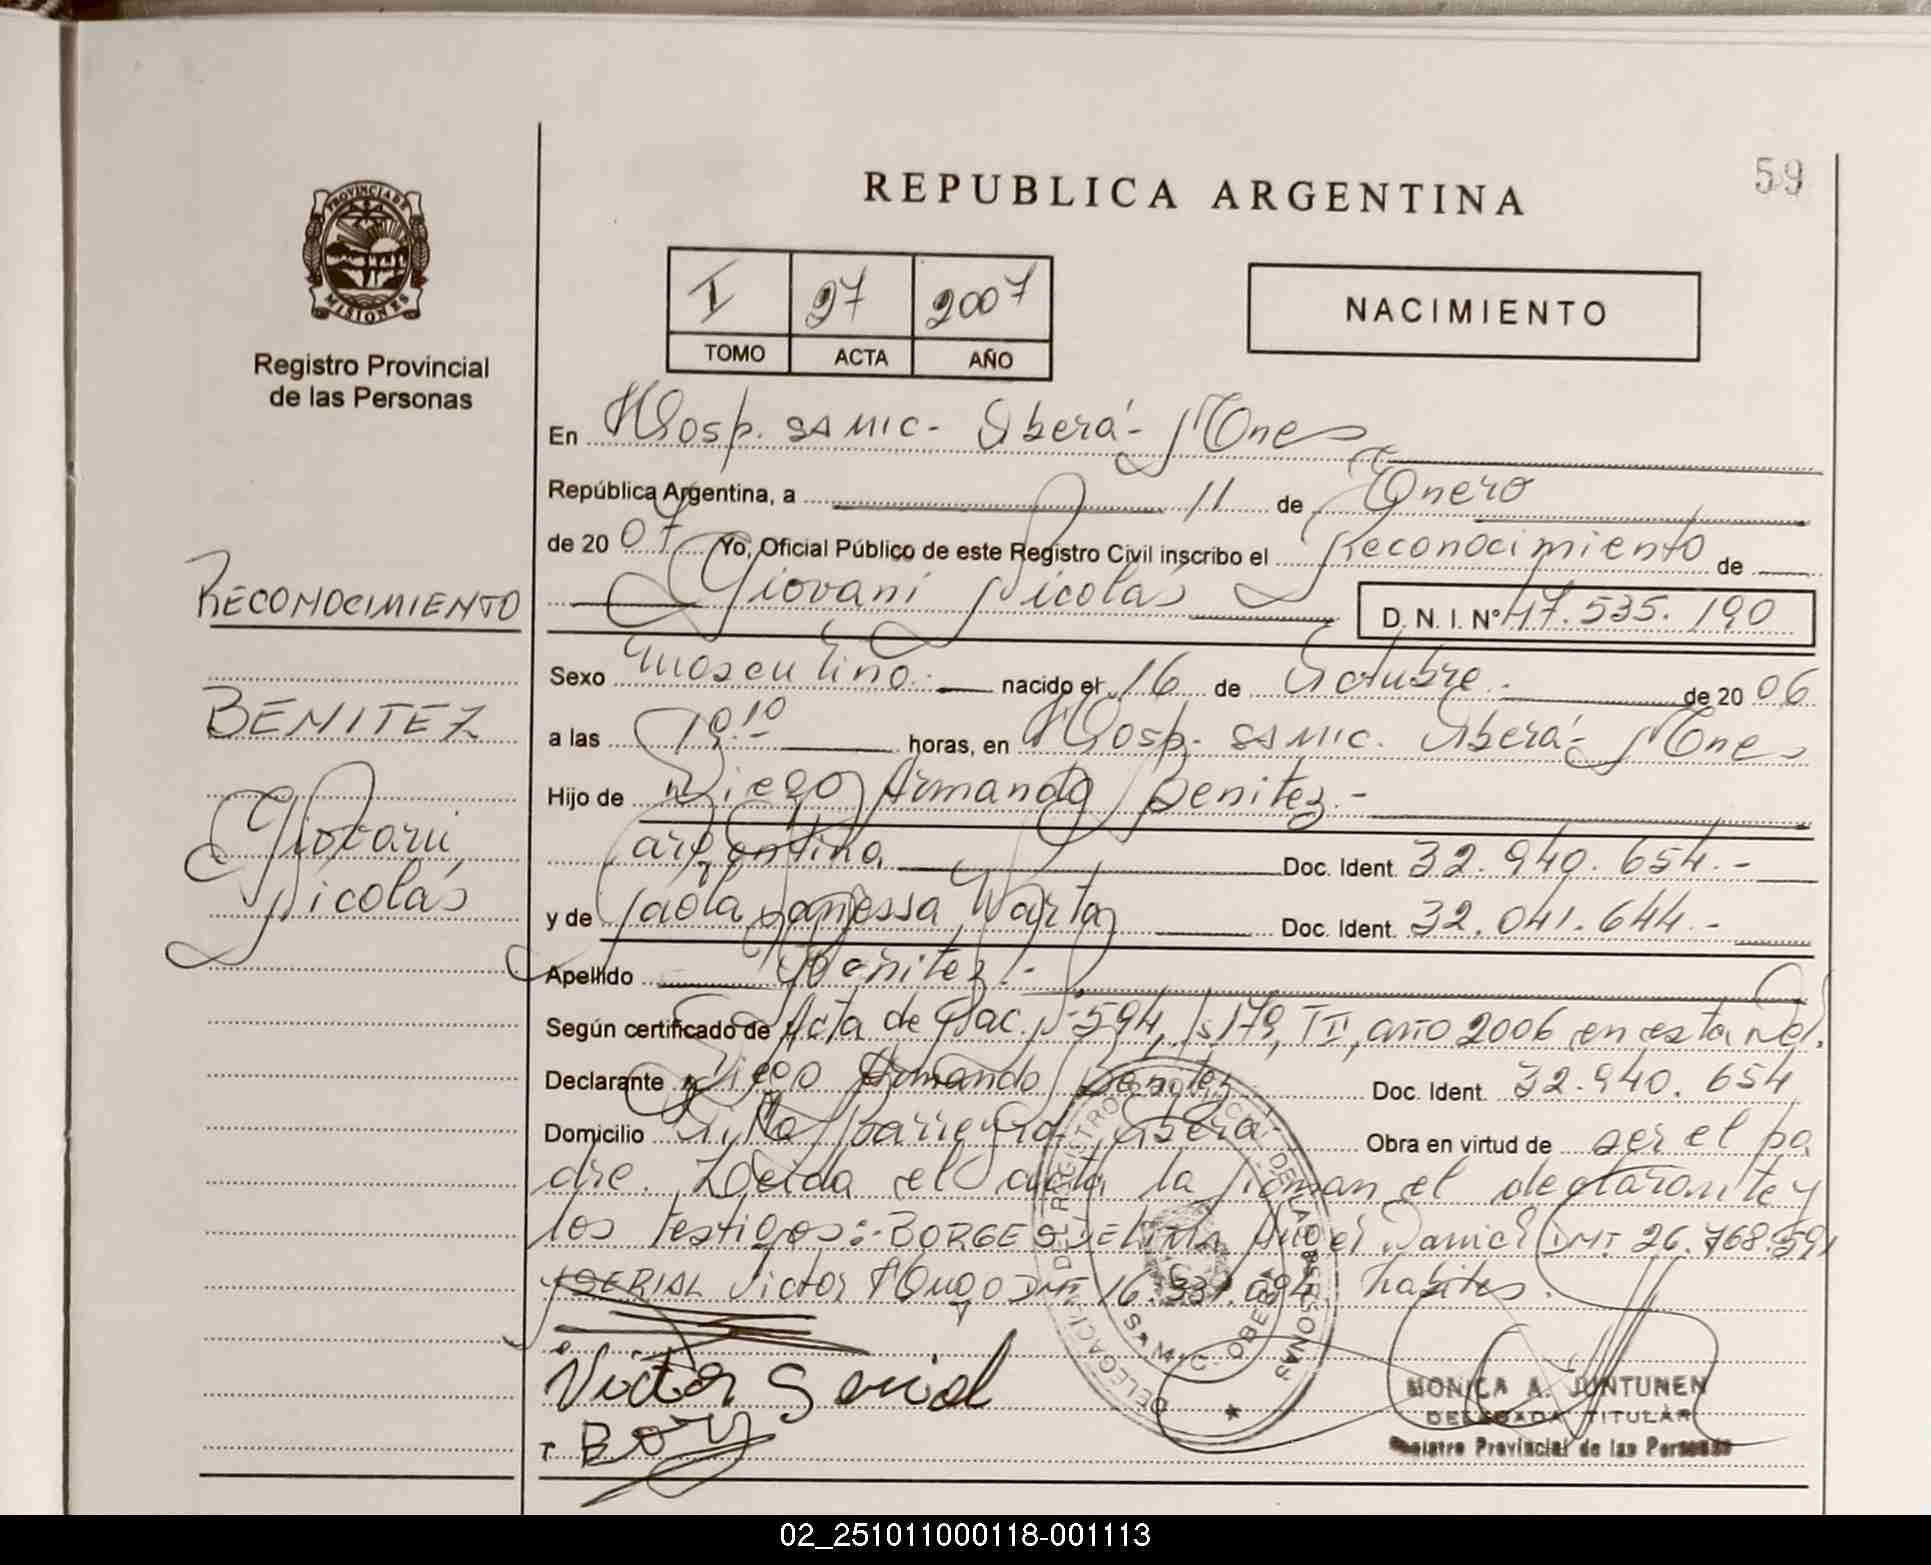 59
REPUBLICA ARGENTINA
PROVINCIA DE
MISIONES
Registro Provincial
de las Personas
I 97 2007
TOMO ACTA AÑO
NACIMIENTO
En Hosp. SAMIC - Oberá - Mnes
República Argentina, a 11 de Enero
de 20 07 Yo, Oficial Público de este Registro Civil inscribo el Reconocimiento de
Giovani Nicolás D. N. I. Nº 47.535.190
Sexo Masculino.- nacido el 16 de Octubre.- de 20 06
a las 19.10 horas, en Hosp. SAMIC. Oberá - Mnes
Hijo de Diego Armando Benitez.-
argentino Doc. Ident. 32.940.654.-
y de Paola Vanessa Doc. Ident. 32.041.644.-
Apellido Benitez.-
Según certificado de Acta de Nac. Nº 594, Fs 179, T II, año 2006 en esta Del.
Declarante Diego Armando Benitez Doc. Ident. 32.940.654
Domicilio Villa Barreyro Oberá- Obra en virtud de ser el pa
dre. Leída el acta la firman el declarante y
los testigos:- BORGES DE LIMA Angel Daniel DNI. 26.768.591
y SERIAL Victor Hugo DNI. 16.331.694 habiles.
RECONOCIMIENTO
BENITEZ
Giovani
Nicolás
Victor Serial
MONICA A. JUNTUNEN
DELEGADA TITULAR
Registro Provincial de las Personas
02_251011000118-001113